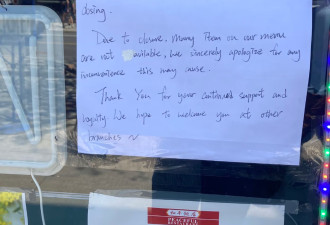 closing.
Due to closure, many item on our menu
are not available, we sincerely apologize for any
inconvenience this may cause.
Thank You for your continued support and
loyalty. We hope to welcome you at other
branches ~
PEACEFUL